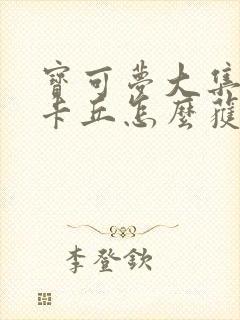 寶可夢大集
卡丘怎麼獲
李登欽